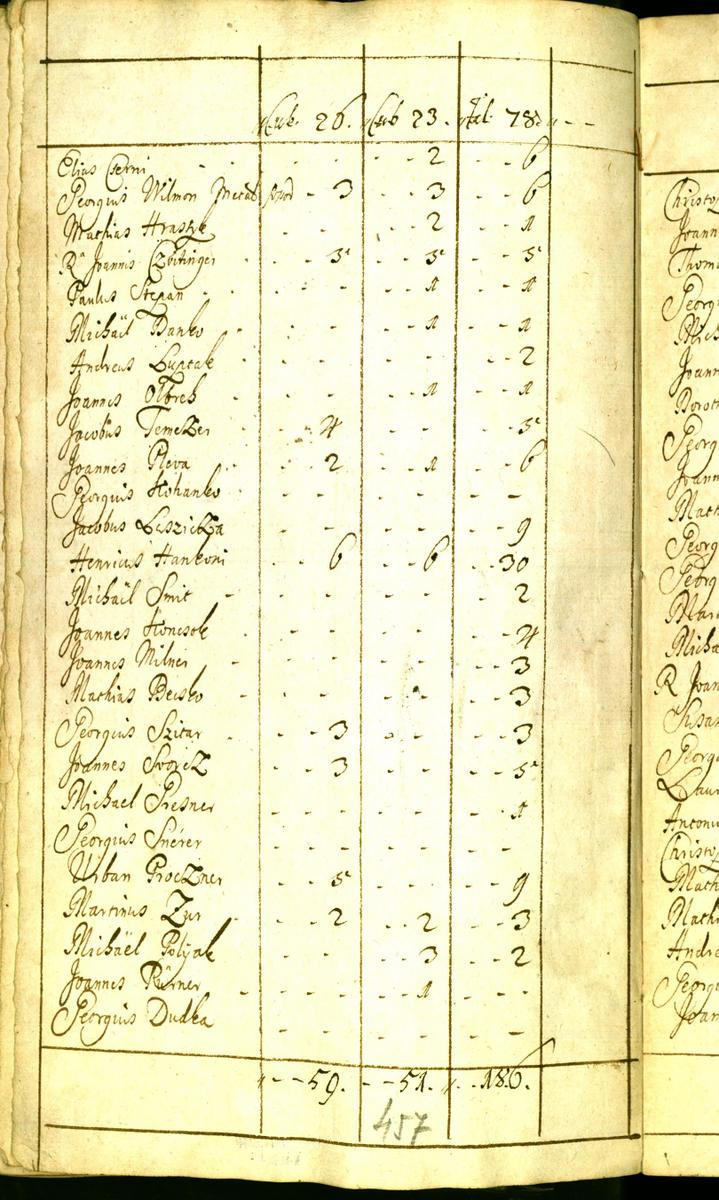 Cub. 26. Cub 23. Tal. 78.
Elias Czerni - - - - - 2 - - 6
Georgius Wilmon - - 3 - - 3 - - 6
Mathias Hrastyk - - - - 2 - - 1
R. Joannis Czbitinger - - 5 - - 5 - - 5
Paulus Stepan - - - - 1 - - 1
Michäil Danko - - - - 1 - - 1
Andreas Luptak - - - - - - 2
Joannes Olbreh - - - - 1 - - 1
Jacobus Temeczer - - 4 - - - - 5
Joannes Pleva - - 2 - - 1 - - 6
Georgius Hohanko - - - - - -
Jacobus Leszicza - - - - - - 9
Henricus Hankoni - - 6 - - 6 - - 30
Michäil Smit - - - - - - 2
Joannes Koncsok - - - - - - 4
Joannes Milner - - - - - - 3
Mathias Becsko - - - - - - 3
Georgius Szitar - - 3 - - - - 3
Joannes Svorcz - - 3 - - - - 5
Michael Presner - - - - - - 1
Georgius Snérer - - - - - -
Urban Proczner - - 5 - - - - 9
Martinus Zur - - 2 - - 2 - - 3
Michäel Polyak - - - - 3 - - 2
Joannes Kürner - - - - 1 - -
Georgius Dudka - - - - - -
- - 59. - - 51. - - 186.
457
Christo
Joann
Thom
Georg
Mich
Joann
Dorot
Georg
Joann
Math
Georg
Georg
Mar
Micha
R Joan
Susan
Georg
Laur
Antoni
Christo
Math
Math
Andre
Georg
Joan